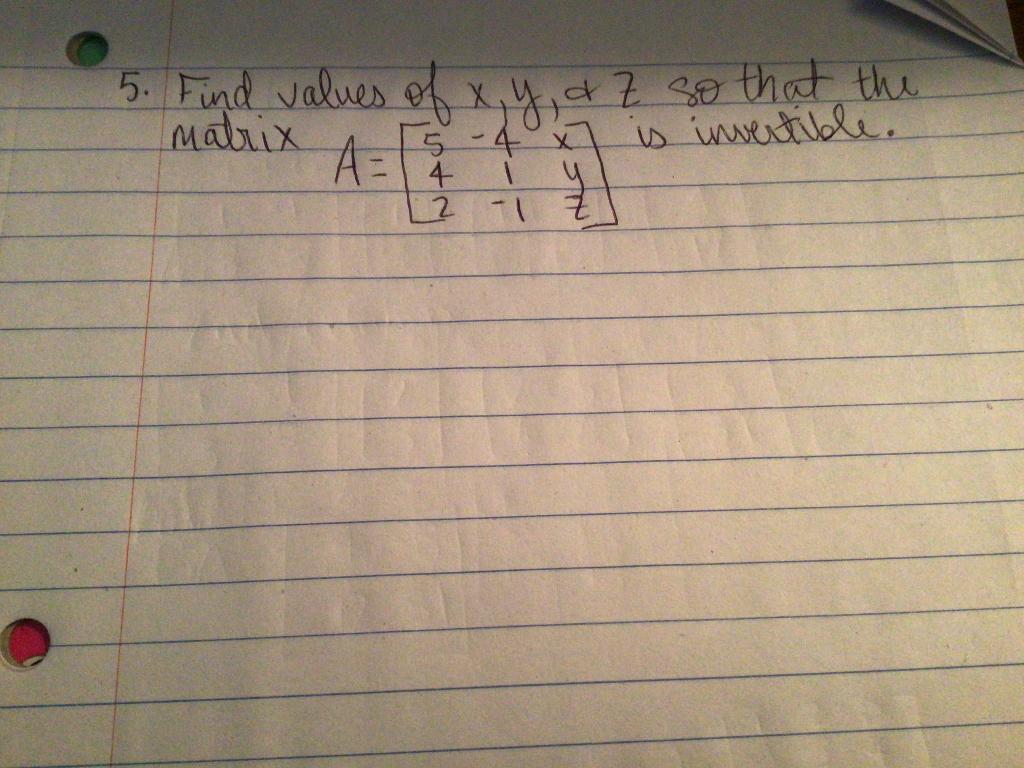 5. Find values of x, y, & z so that the
matrix A = [5 -4 x is invertible.
4 1 y
2 -1 z]